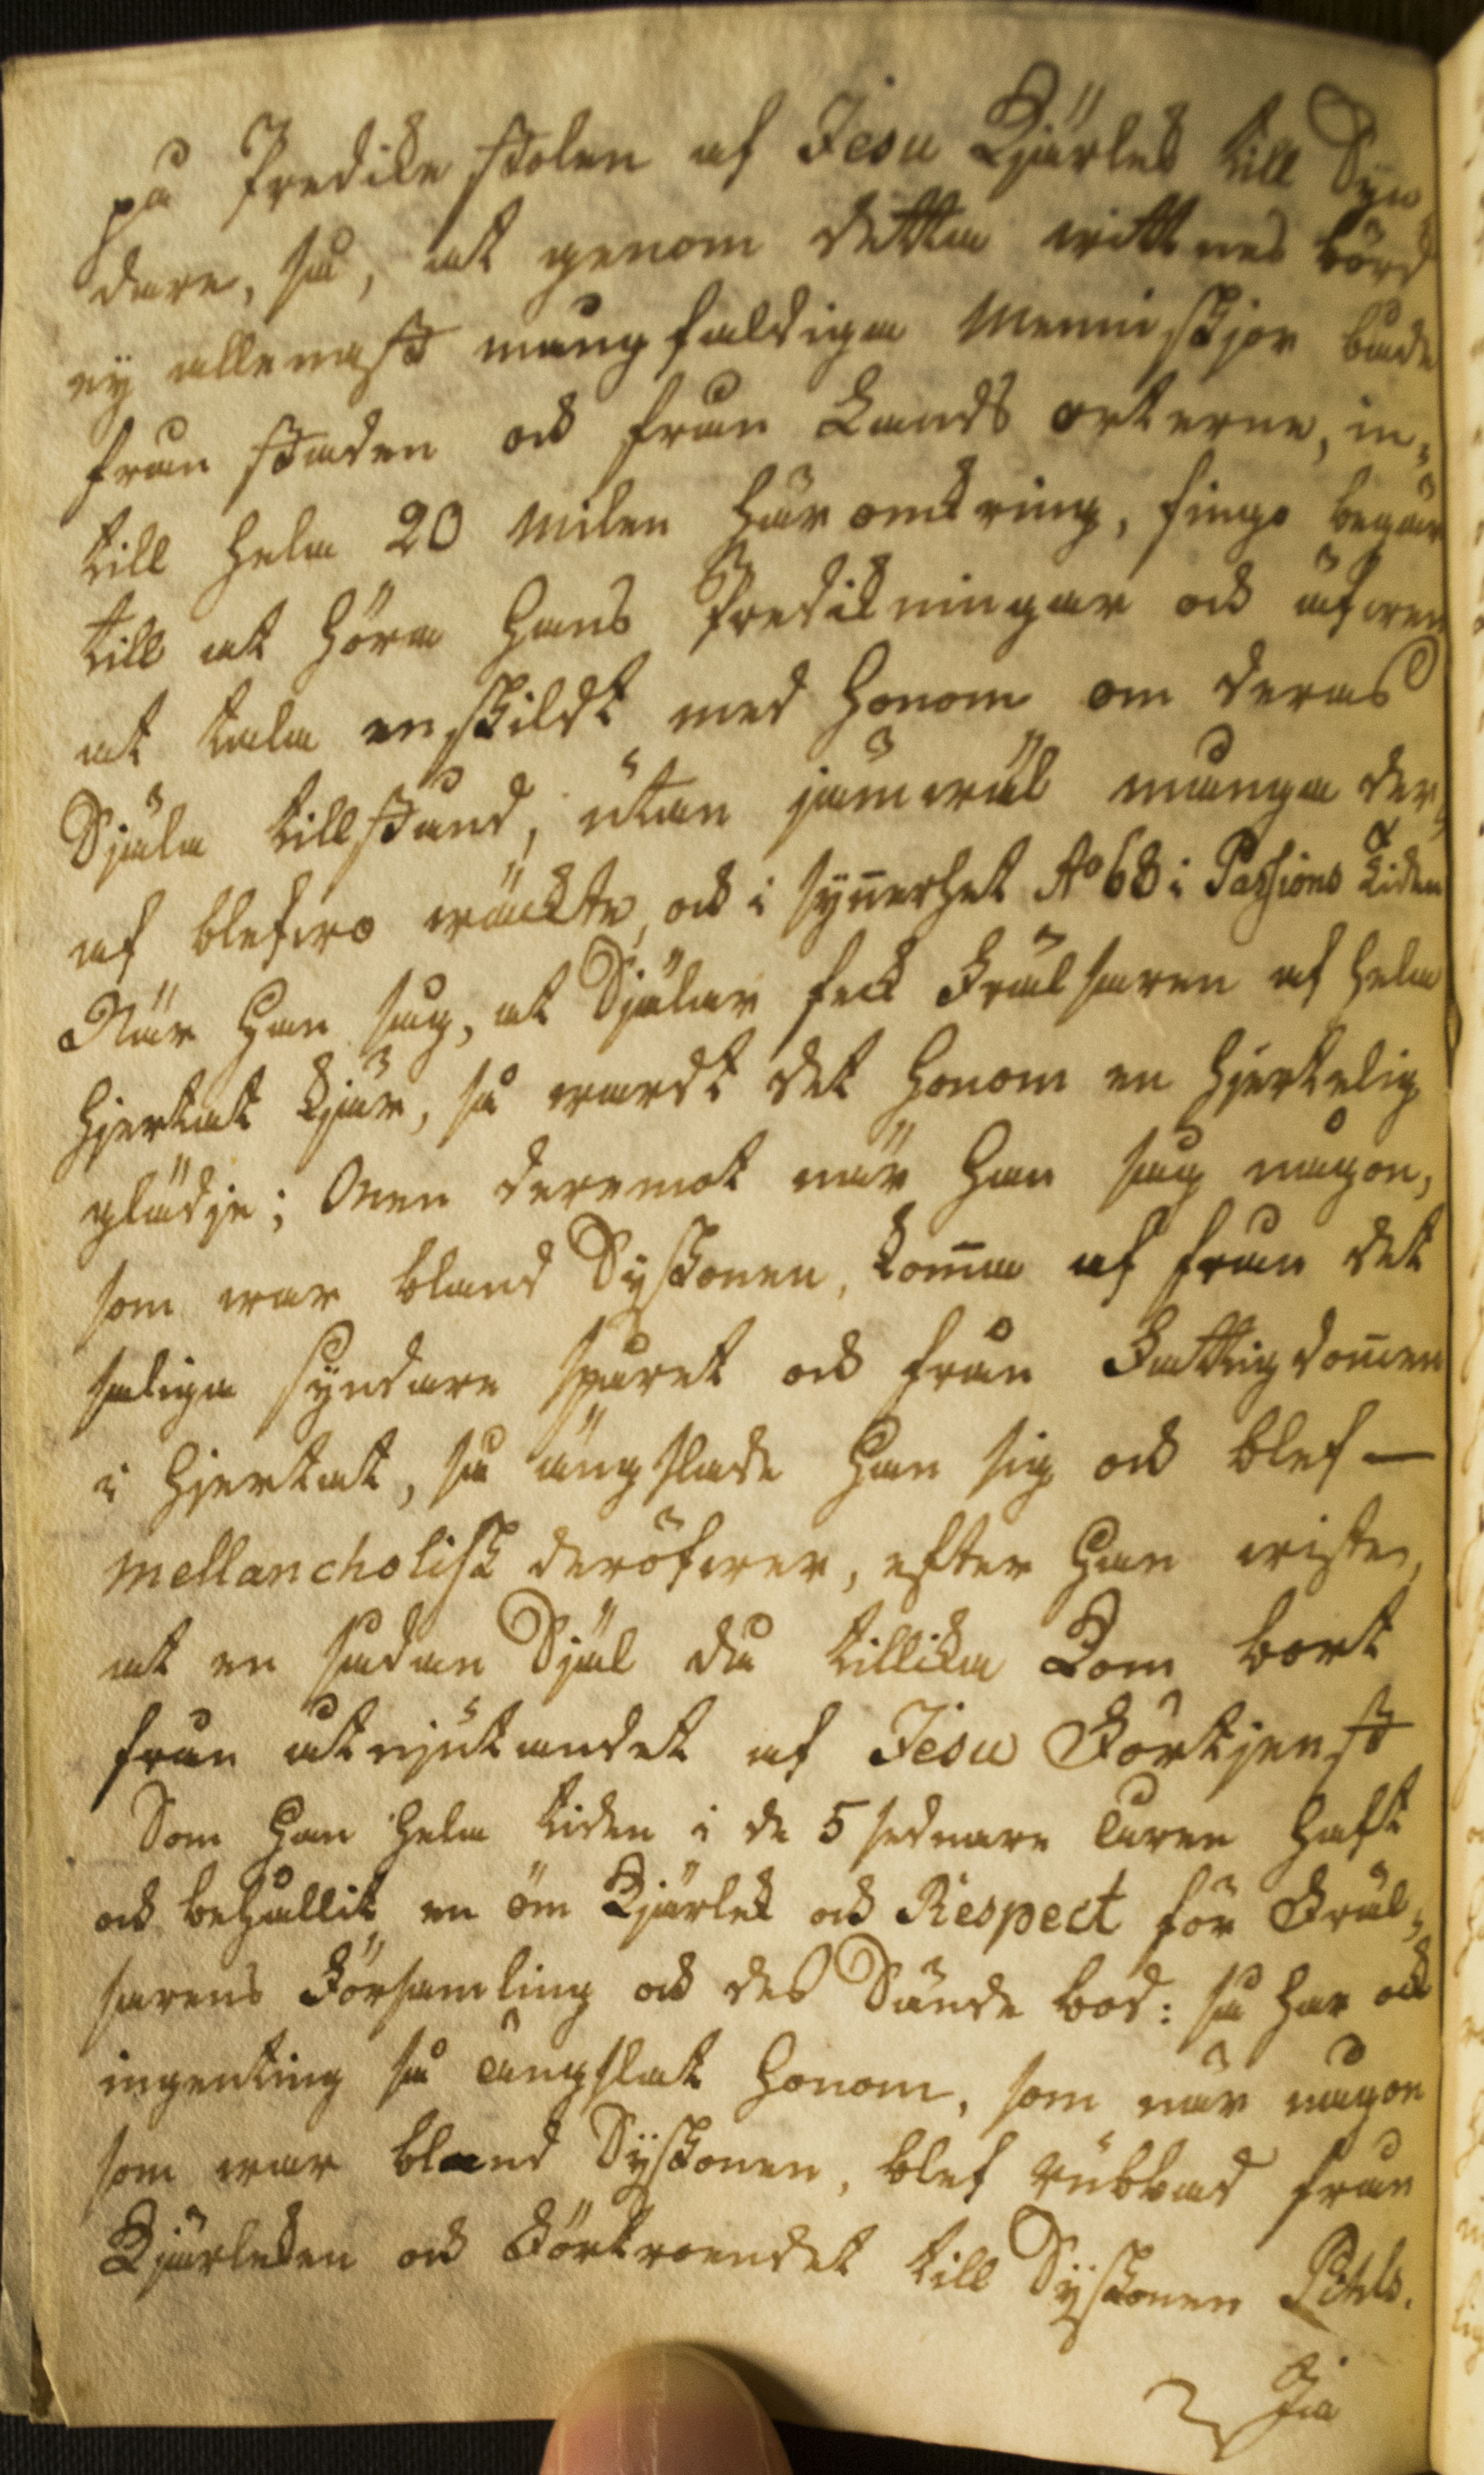 på Predike stolen af Jesu Kjärlek till Syn-
dare, så, at genom detta wittnes börd
ej allenast mångfaldiga Menniskjor både
från staden och från Lands orterne, in-
till hela 20 Milen här omkring, fingo begär
till at höra Hans Predikningar och äfwen
at tala enskildt med Honom om deras
Själa tillstånd, utan jämwäl många der-
af blefwo wäckte, och i synnerhet Ao 68 i Passions tiden
När Han såg, at Själar feck Frälsaren af hela
hjertat kjär, så wardt det Honom en hjertelig
glädje; Men deremot när Han såg någon,
som war bland Syskonen, kom̄a af från det
saliga syndare spåret och från Fattigdom̄en
i hjertat, så ängslade Han sig och blef —
Mellancholisk deröfwer, efter Han wiste,
at en sådan Själ då tillika Kom bort
från åtnjutandet af Jesu Förtjenst
Som Han hela tiden i de 5 sednare åren haft
och behållit en öm Kjärlek och Respect för Fräl-
sarens Församling och des Sände bod: så har ock
ingenting så ängslat Honom, som när någon
som war bland Syskonen, blef rubbad från
Kjärleken och Förtroendet till Syskonen